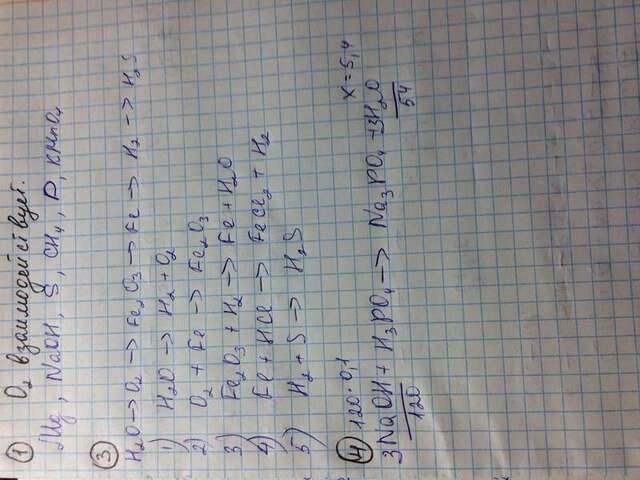 ① O₂ взаимодействует.
Mg, NaOH, S, CH₄, P, KMnO₄
③
H₂O → O₂ → Fe₂O₃ → Fe → H₂ → H₂S
1) H₂O → H₂ + O₂
2) O₂ + Fe → Fe₂O₃
3) Fe₂O₃ + H₂ → Fe + H₂O
4) Fe + HCl → FeCl₂ + H₂
5) H₂ + S → H₂S
④ 120·0,1 x = 5,4
3NaOH + H₃PO₄ → Na₃PO₄ + 3H₂O
120 54